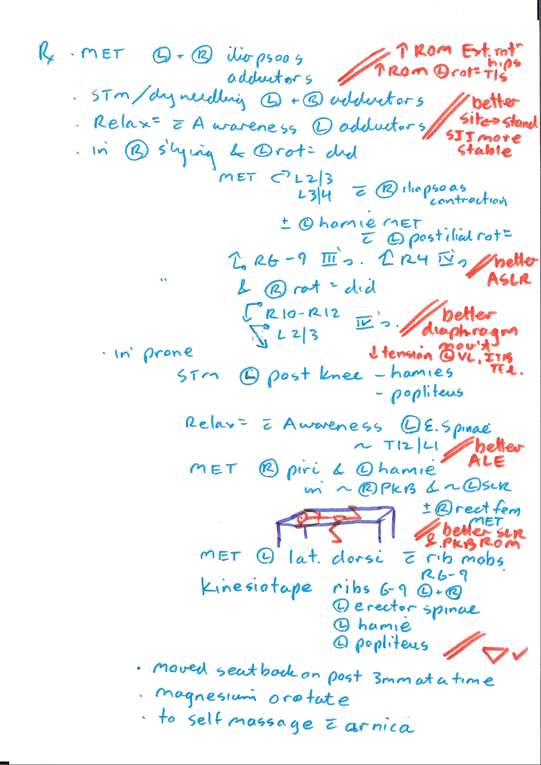 Rx · MET Ⓛ + Ⓡ iliopsoas
adductors
↑ ROM Ext. rotⁿ
hips
↑ ROM Ⓛ rot= T/S
· STM/dry needling Ⓛ + Ⓡ adductors
· Relax= c̄ Awareness Ⓛ adductors
better
sit↔stand
SIJ more
stable
· in Ⓡ s'lying & Ⓛ rot= did
MET L2/3
L3/4 c̄ Ⓡ iliopsoas
contraction
± Ⓛ hamie MET
c̄ Ⓛ post ilial rot=
R6-9 III's. R4 IV's
better
ASLR
& Ⓡ rot= did
R10-R12
L2/3 IV's.
better
diaphragm
mov't
· in prone
↓ tension Ⓛ VL, ITB
TFL.
STM Ⓛ post knee - hamies
- popliteus
Relax= c̄ Awareness Ⓛ E. Spinae
~ T12/L1
better
ALE
MET Ⓡ piri & Ⓛ hamie
in ~ Ⓡ PKB & ~ Ⓛ SLR
± Ⓡ rect fem
MET
better SLR
& PKB ROM
MET Ⓛ lat. dorsi c̄ rib mobs
R6-9
Kinesiotape ribs 6-9 Ⓛ + Ⓡ
Ⓛ erector spinae
Ⓛ hamie
Ⓛ popliteus
▽ ✓
· moved seat back on post 3mm at a time
· magnesium orotate
· to self massage c̄ arnica